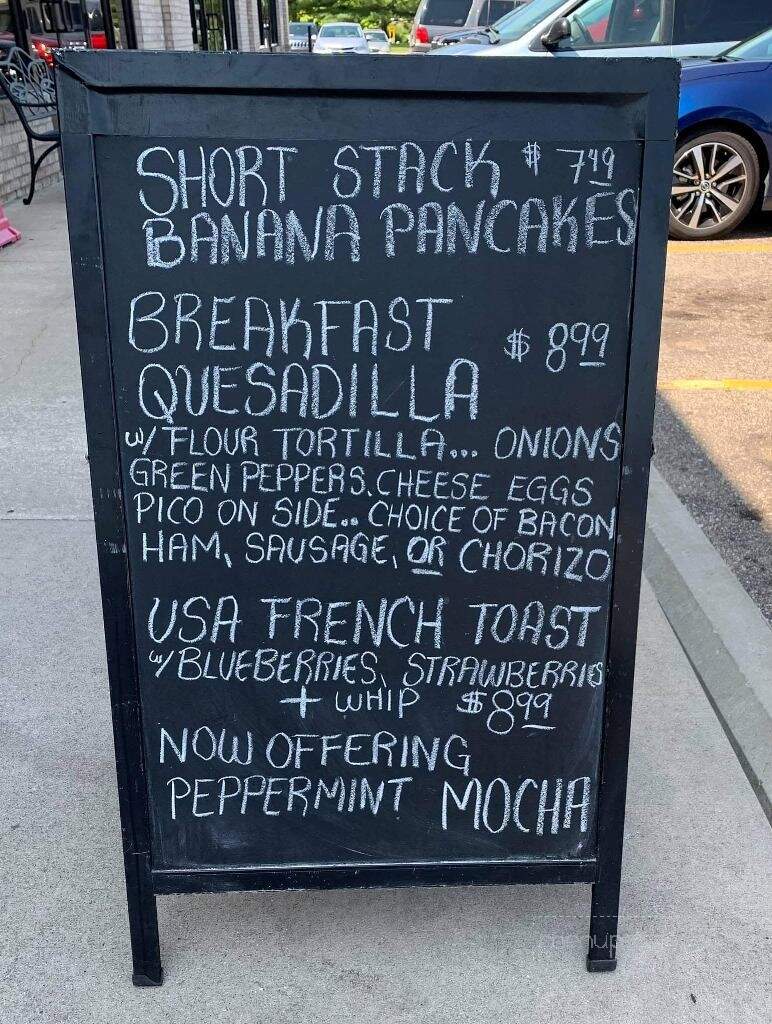 SHORT STACK $ 7 49
BANANA PANCAKES
BREAKFAST
$ 8 99
QUESADILLA
w/ FLOUR TORTILLA... ONIONS
GREEN PEPPERS, CHEESE EGGS
PICO ON SIDE.. CHOICE OF BACON
HAM, SAUSAGE, OR CHORIZO
USA FRENCH TOAST
w/ BLUEBERRIES, STRAWBERRIES
+ WHIP $8 99
NOW OFFERING
PEPPERMINT MOCHA